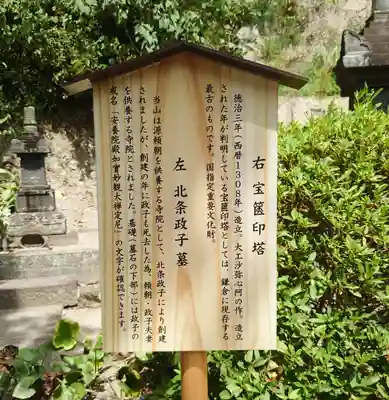 右 宝篋印塔
徳治三年（西暦1308年）造立。大工沙弥心阿の作。造立
された年が判明している宝篋印塔としては、鎌倉に現存する
最古のものです。国指定重要文化財。
左 北条政子墓
当山は源頼朝を供養する寺院として、北条政子により創建
されましたが、創建の年に政子も死去した為、頼朝・政子夫妻
を供養する寺院とされました。基礎（墓石の下部）には政子の
戒名「安養院殿如実妙観大禅定尼」の文字が確認できます。